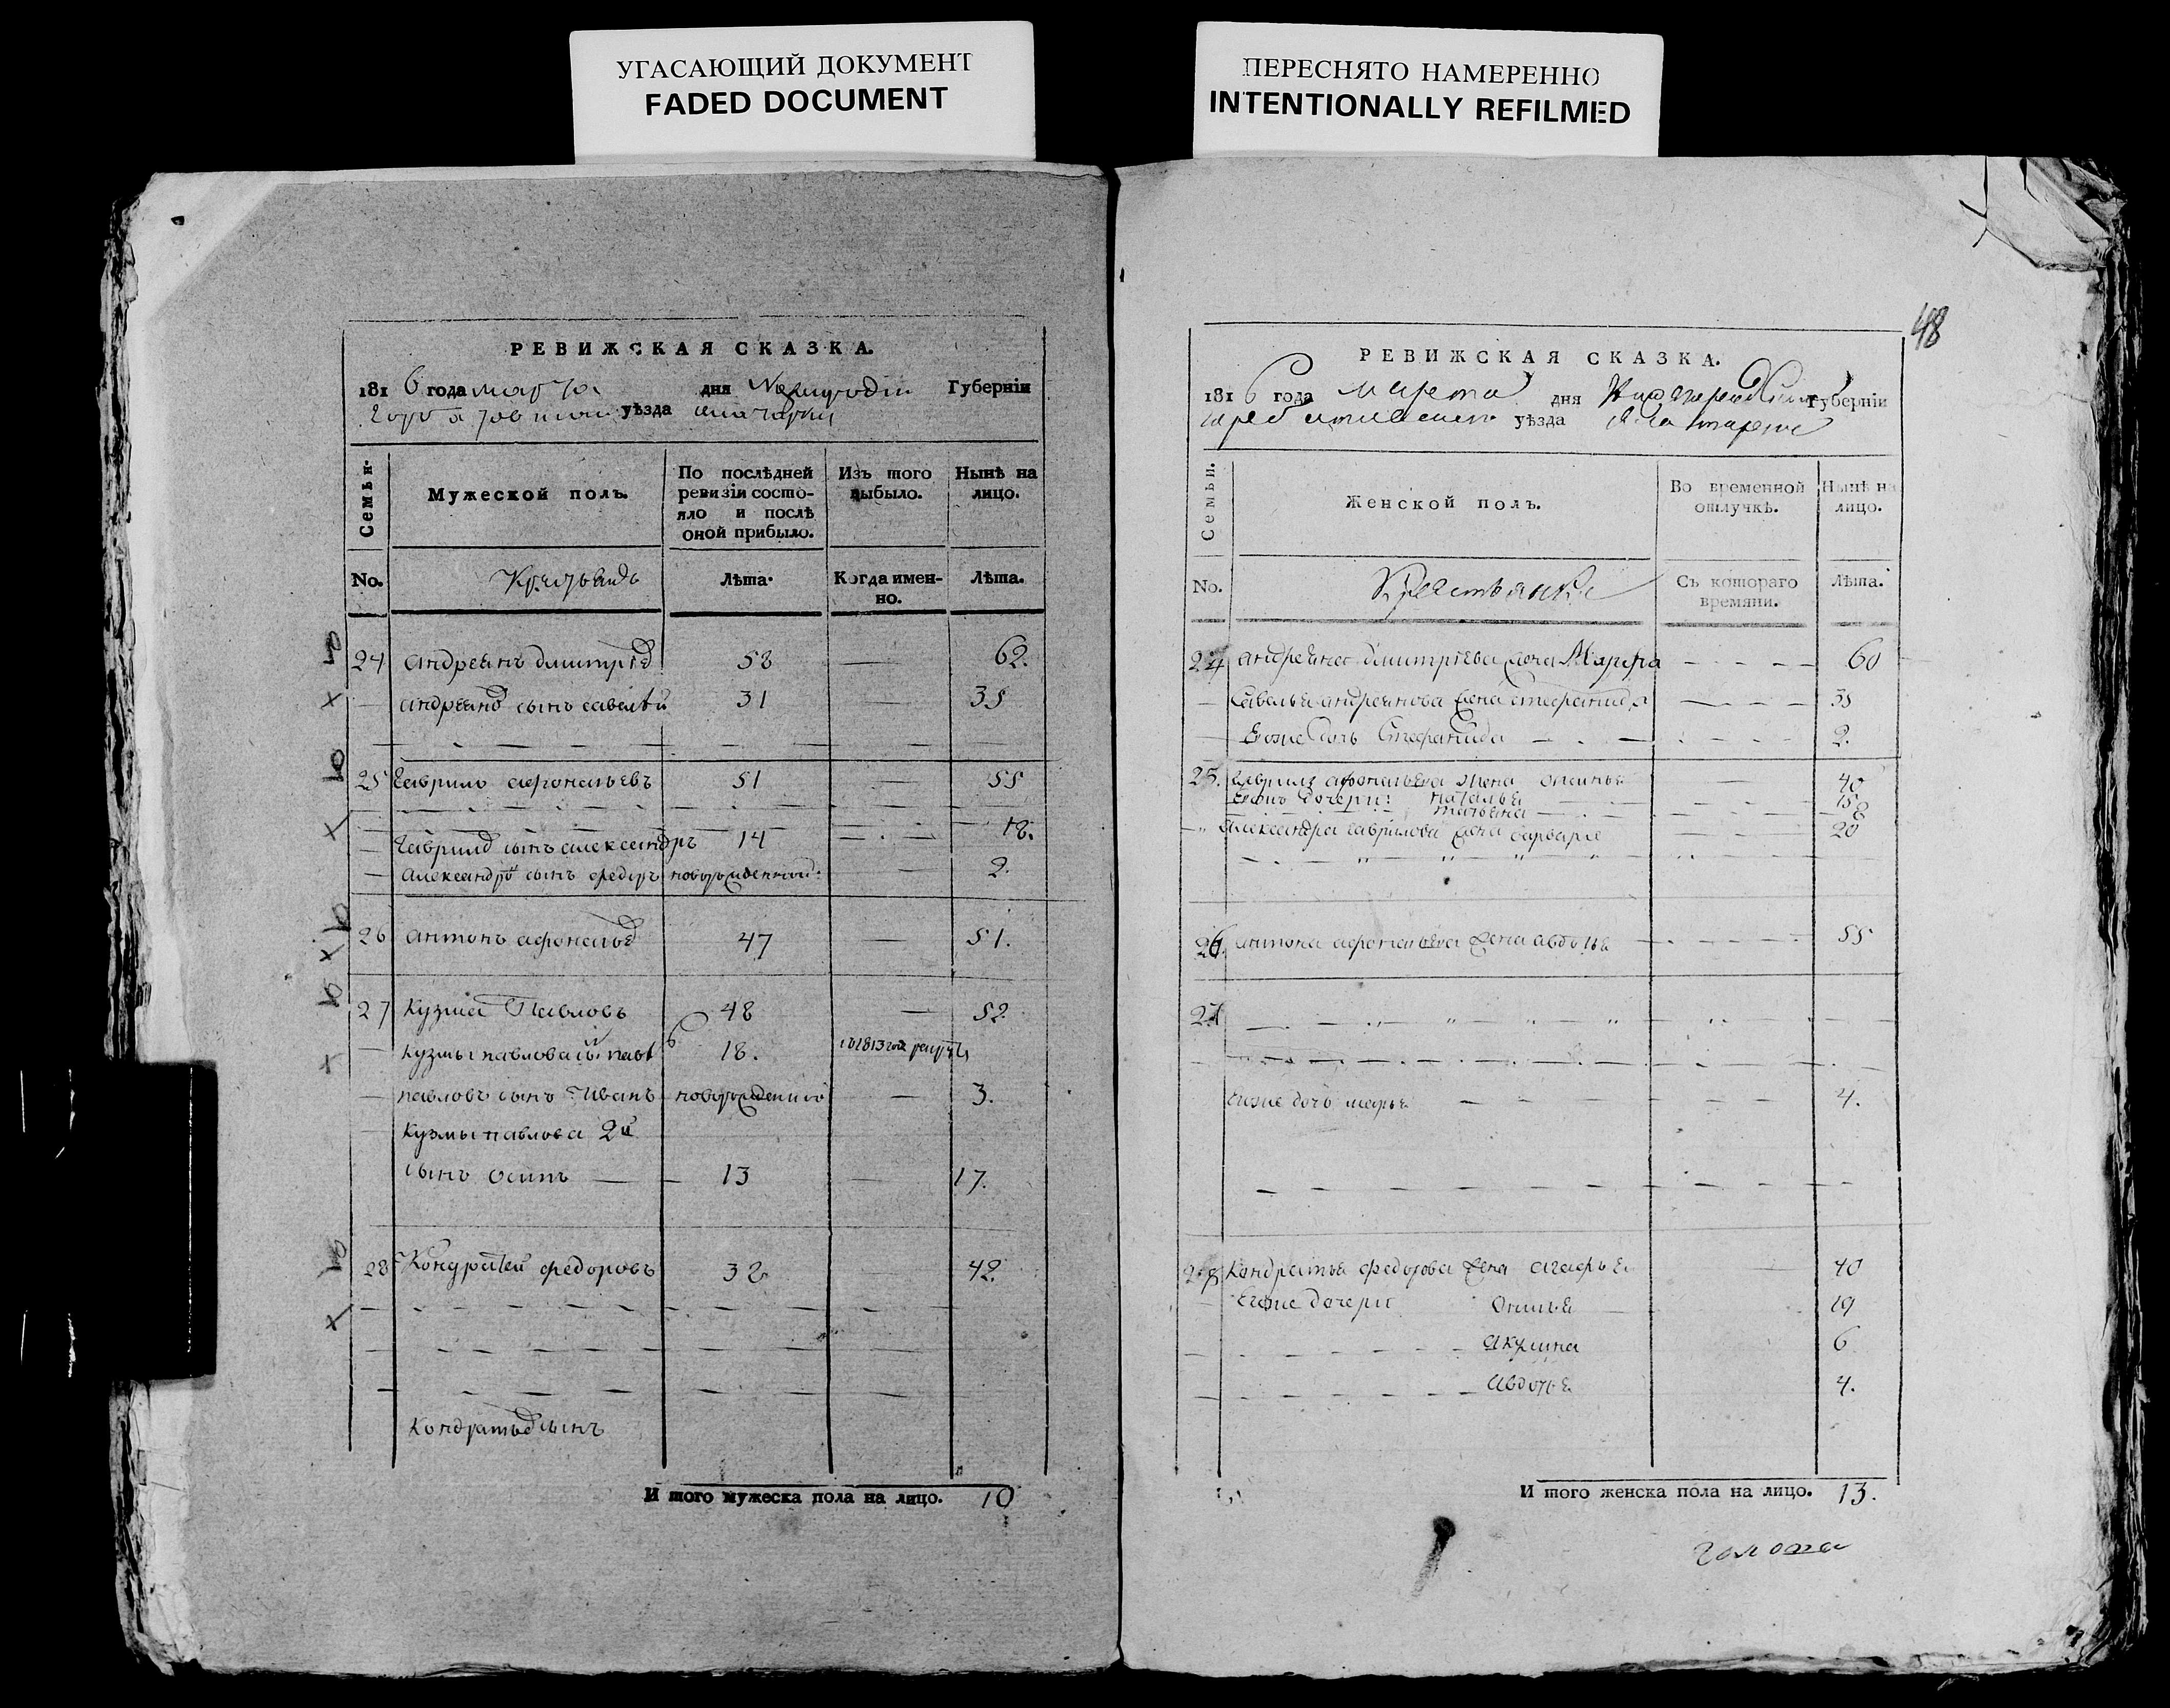 УГАСАЮЩИЙ ДОКУМЕНТ
FADED DOCUMENT
ПЕРЕСНЯТО НАМЕРЕННО
INTENTIONALLY REFILMED
РЕВИЖСКАЯ СКАЗКА.
181 6 года марта дня Губерніи
уѣзда
Семьи.
Мужеской полъ.
По послѣдней ревизіи состояло и послѣ оной прибыло.
Изъ того выбыло.
Нынѣ на лицо.
No.
Лѣта.
Когда именно.
Лѣта.
24 андреянъ дмитріе 58 — 62.
— андреяно сынъ савелей 31 — 35
25 Гаврило афонасьевъ 51 — 55
— Гаврило сынъ александръ 14 — 18.
— александро сынъ федоръ новорожденной. — 2.
26 антонъ афонасье 47 — 51.
27 кузма Павловъ 48 — 52
— кузмы павлова 18.
— павловъ сынъ Иванъ новорожденной — 3.
кузмы павлова 2й
сынъ осипъ — 13 — 17.
28 Кондратей федоровъ 32 42.
кондратье сынъ
И того мужеска пола на лицо. 10
48
РЕВИЖСКАЯ СКАЗКА.
181 6 года марта дня Губерніи
уѣзда
Семьи.
Женской полъ.
Во временной отлучкѣ.
Нынѣ на лицо.
No.
Крестьянки
Съ котораго времяни.
Лѣта.
24 андреяна дмитріева жена Марфа 60
— Савелья андреянова жена степанида 35
Евоже дочь Степанида 2.
25. Гаврила афонасьева жена 40
дочери: наталья 15
татьяна 8
александра гаврилова жена варвара 20
26. антона афонасьева жена авдотья 55
27
Евоже дочь марья 4.
28 Кондратья федорова жена агафья 40
Евоже дочери 19
акулина 6
авдотья 4.
И того женска пола на лицо. 13.